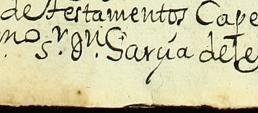 de Testamentos Cape
mo sr. Dn. Garçia de Te